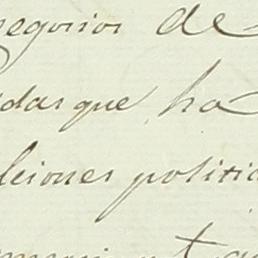 negocios de
das que ha
ciones politic